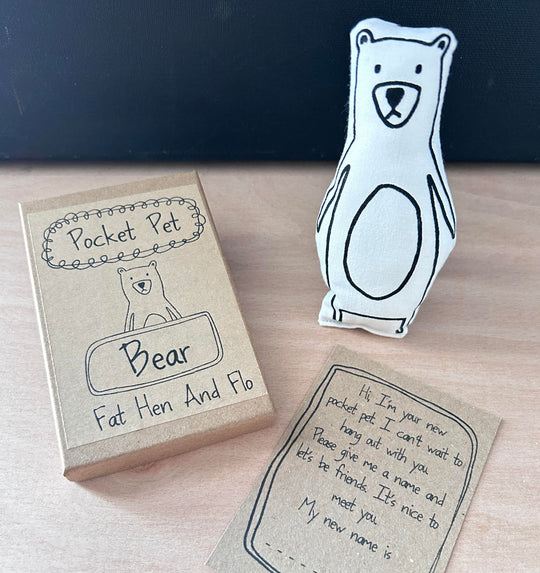 Pocket Pet
Bear
Fat Hen And Flo
Hi, I'm your new
pocket pet. I can't wait to
hang out with you
Please give me a name and
let's be friends. It's nice to
meet you
My new name is